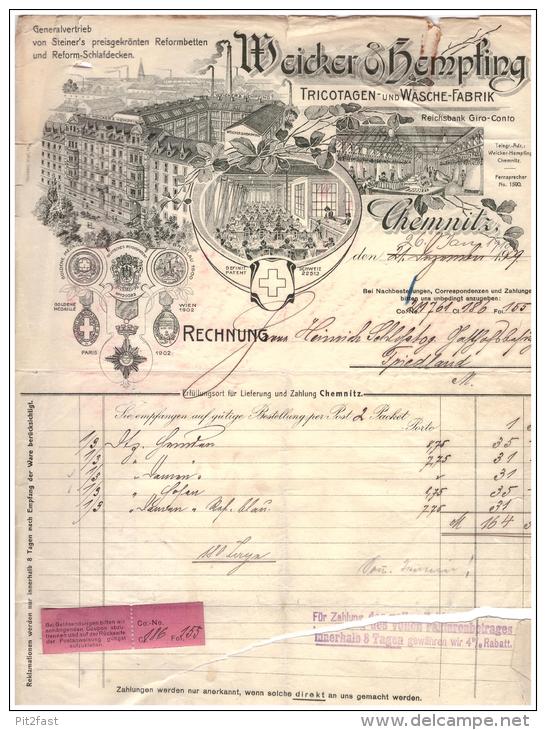 Generalvertrieb
von Steiner's preisgekrönten Reformbetten
und Reform-Schlafdecken.
Weicker & Hempfing
TRICOTAGEN- UND WÄSCHE-FABRIK
Reichsbank Giro-Conto
Telegr.-Adr.:
Weicker-Hempfing
Chemnitz.
Fernsprecher
No. 1590.
Chemnitz,
den
DEFINIT. PATENT
SCHWEIZ 22512
GOLDENE MEDAILLE
WIEN 1902
PARIS 1902
Bei Nachbestellungen, Correspondenzen und Zahlungen
bitten uns unbedingt anzugeben:
Cl. 186 Fol. 155
RECHNUNG
Herrn Heinrich
Friedland
M.
Erfüllungsort für Lieferung und Zahlung Chemnitz.
Sie empfangen auf gütige Bestellung per Post 2 Packet
Porto 1
1/3 Dtz. Hemden 8,75 35
1/3 " 7,75 31
1/3 " Damen " " 31
1/3 " Hosen 8,75 35
1/3 " Damen " 7,75 31
M 164
Reklamationen werden nur innerhalb 8 Tagen nach Empfang der Ware berücksichtigt.
Bei Geldsendungen bitten wir
anhängenden Coupon abzu-
trennen und auf der Rückseite
der Postanweisung gütigst
aufzukleben.
Co.-No.
Cl. 186 Fol. 155
Für Zahlung des vollen Fakturenbetrages
innerhalb 8 Tagen gewähren wir 4% Rabatt.
Zahlungen werden nur anerkannt, wenn solche direkt an uns gemacht werden.
Pit2fast
delcampe.net